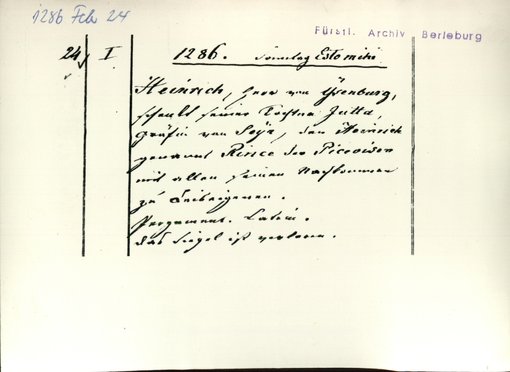 1286 Feb 24
Fürstl. Archiv Berleburg
24 I 1286. Sonntag Estomihi
Heinrich, Herr von Ysenburg,
schenkt seiner Tochter Jutta,
Gräfin von Sayn, den Heinrich
genannt der
mit allen seinen Nachkommen
zu Leibeigenen.
Pergament. Latein.
Das Siegel ist verloren.